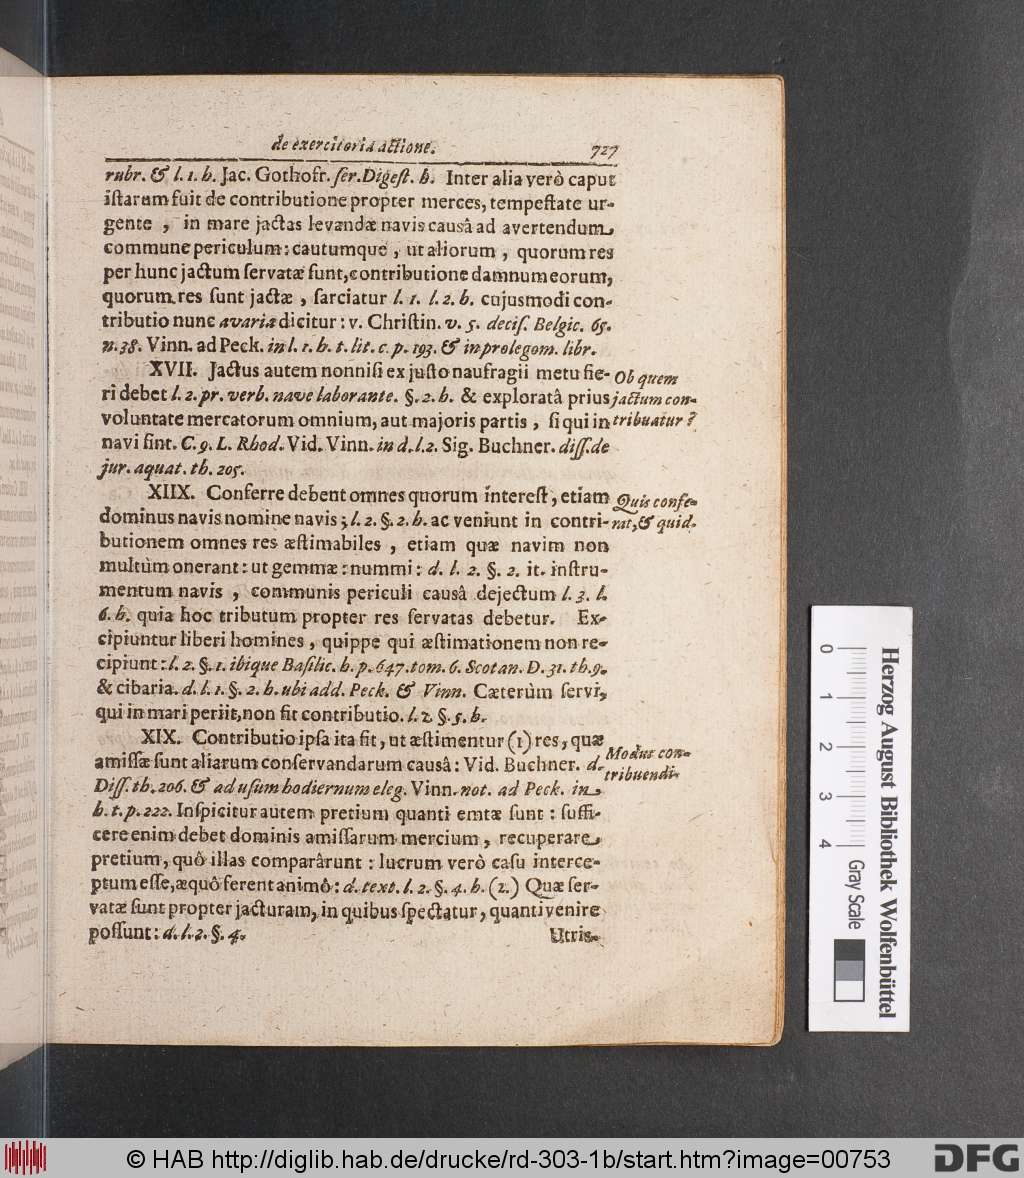 de exercitoria actione. 727
rubr. & l. 1. h. Jac. Gothofr. ſer. Digeſt. h. Inter alia verò caput
iſtarum fuit de contributione propter merces, tempeſtate ur-
gente , in mare jactas levandæ navis causâ ad avertendum
commune periculum: cautumque , ut aliorum , quorum res
per hunc jactum ſervatæ ſunt, contributione damnum eorum,
quorum res ſunt jactæ , ſarciatur l. 1. l. 2. h. cujusmodi con-
tributio nunc avaria dicitur: v. Chriſtin. v. 5. deciſ. Belgic. 65.
n. 38. Vinn. ad Peck. in l. 1. h. t. lit. c. p. 193. & in prolegom. libr.
XVII. Jactus autem nonniſi ex juſto naufragii metu fie-
ri debet l. 2. pr. verb. nave laborante. §. 2. h. & exploratâ prius
voluntate mercatorum omnium, aut majoris partis , ſi qui in
navi ſint. C. 9. L. Rhod. Vid. Vinn. in d. l. 2. Sig. Buchner. diſſ. de
jur. aquat. th. 205.
Ob quem
jactum con-
tribuatur ?
XIIX. Conferre debent omnes quorum intereſt, etiam
dominus navis nomine navis ; l. 2. §. 2. h. ac veniunt in contri-
butionem omnes res æſtimabiles , etiam quæ navim non
multùm onerant: ut gemmæ: nummi: d. l. 2. §. 2. it. inſtru-
mentum navis , communis periculi causâ dejectum l. 3. l.
6. h. quia hoc tributum propter res ſervatas debetur. Ex-
cipiuntur liberi homines , quippe qui æſtimationem non re-
cipiunt: l. 2. §. 1. ibique Baſilic. h. p. 647. tom. 6. Scotan. D. 31. th. 9.
& cibaria. d. l. 1. §. 2. h. ubi add. Peck. & Vinn. Cæterùm ſervi,
qui in mari periit, non fit contributio. l. 2. §. 5. h.
Quis confe-
rat, & quid.
XIX. Contributio ipſa ita fit, ut æſtimentur (1) res, quæ
amiſſæ ſunt aliarum conſervandarum causâ: Vid. Buchner. d.
Diſſ. th. 206. & ad uſum hodiernum eleg. Vinn. not. ad Peck. in
h. t. p. 222. Inſpicitur autem pretium quanti emtæ ſunt : ſuffi-
cere enim debet dominis amiſſarum mercium , recuperare
pretium, quô illas comparârunt : lucrum verò caſu interce-
ptum eſſe, æquô ferent animô: d. text. l. 2. §. 4. h. (2.) Quæ ſer-
vatæ ſunt propter jacturam, in quibus ſpectatur, quanti venire
poſſunt: d. l. 2. §. 4.
Modus con-
tribuendi.
Utris-
Herzog August Bibliothek Wolfenbüttel
Gray Scale
0 1 2 3 4
© HAB http://diglib.hab.de/drucke/rd-303-1b/start.htm?image=00753
DFG